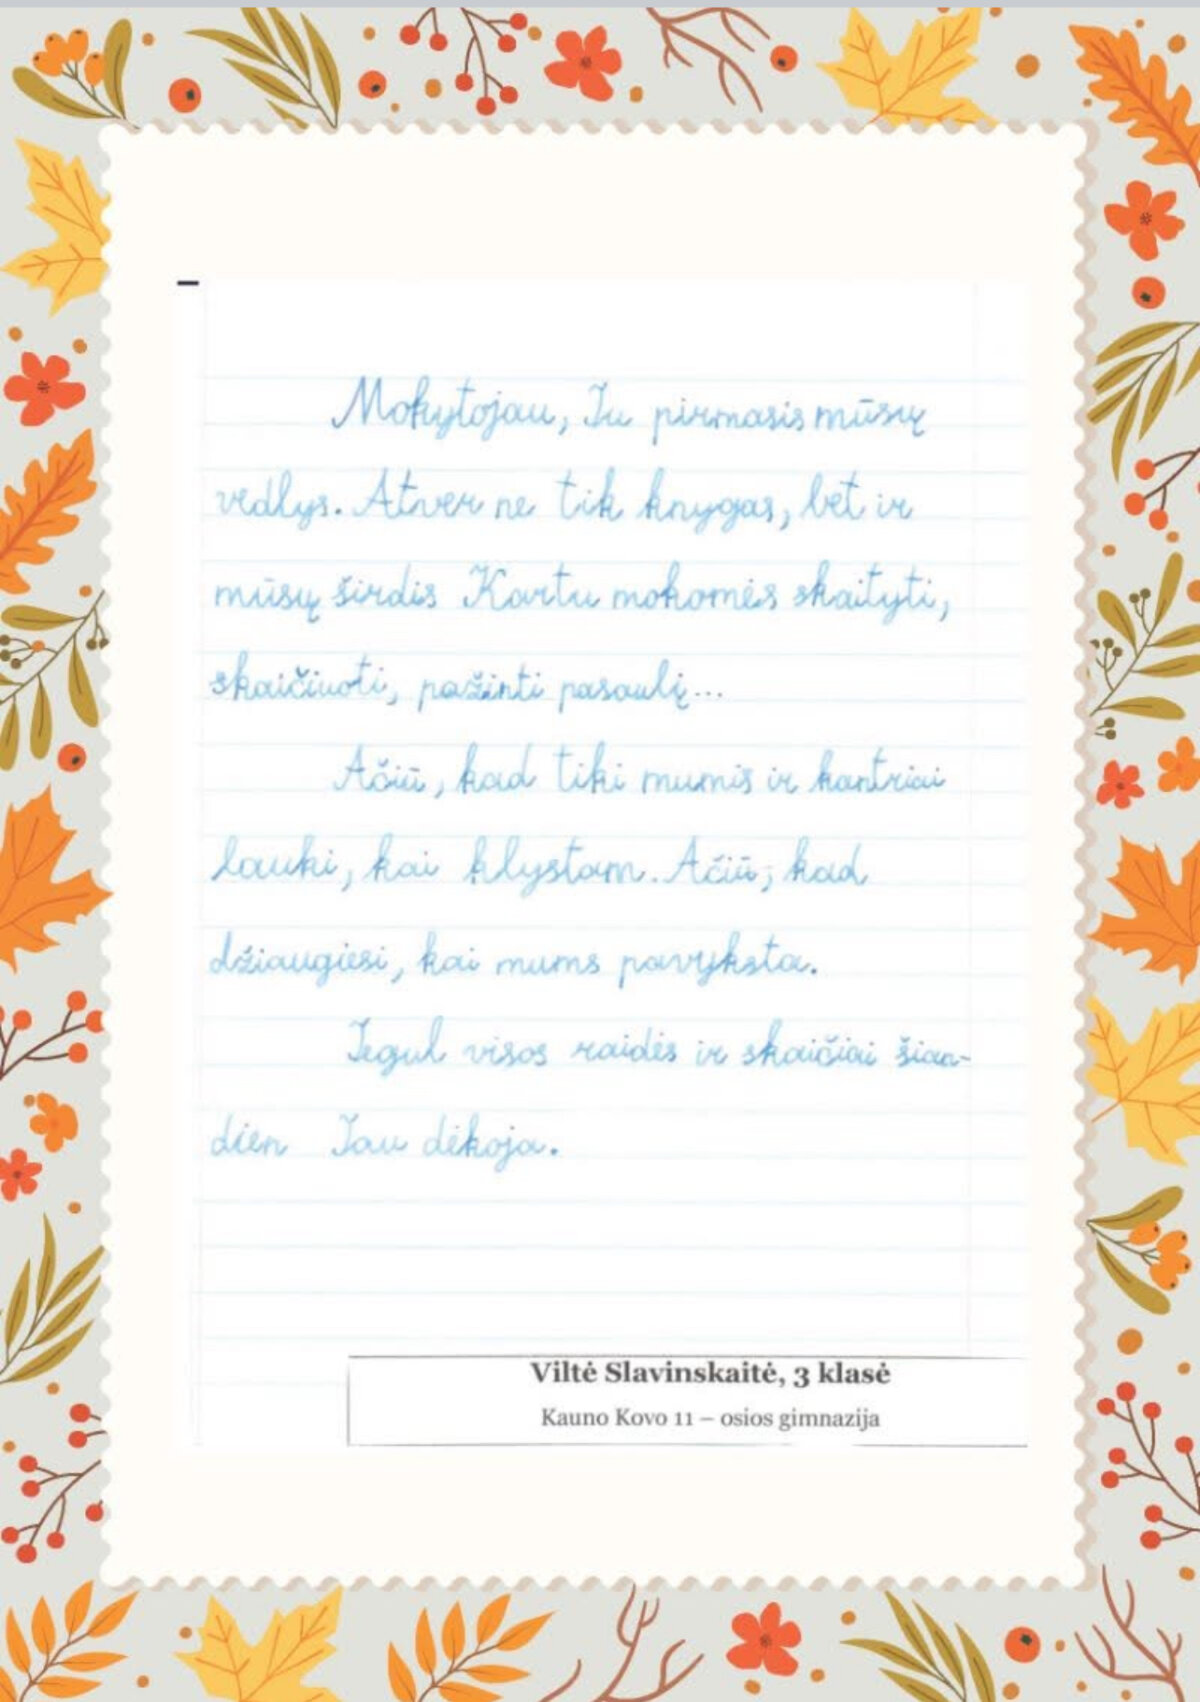 Mokytojau, Tu pirmasis mūsų
vedlys. Atver ne tik knygas, bet ir
mūsų širdis Kartu mokomės skaityti,
skaičiuoti, pažinti pasaulį...
Ačiū, kad tiki mumis ir kantriai
lauki, kai klystam. Ačiū, kad
džiaugiesi, kai mums pavyksta.
Tegul visos raidės ir skaičiai šian-
dien Tau dėkoja.
Viltė Slavinskaitė, 3 klasė
Kauno Kovo 11 – osios gimnazija